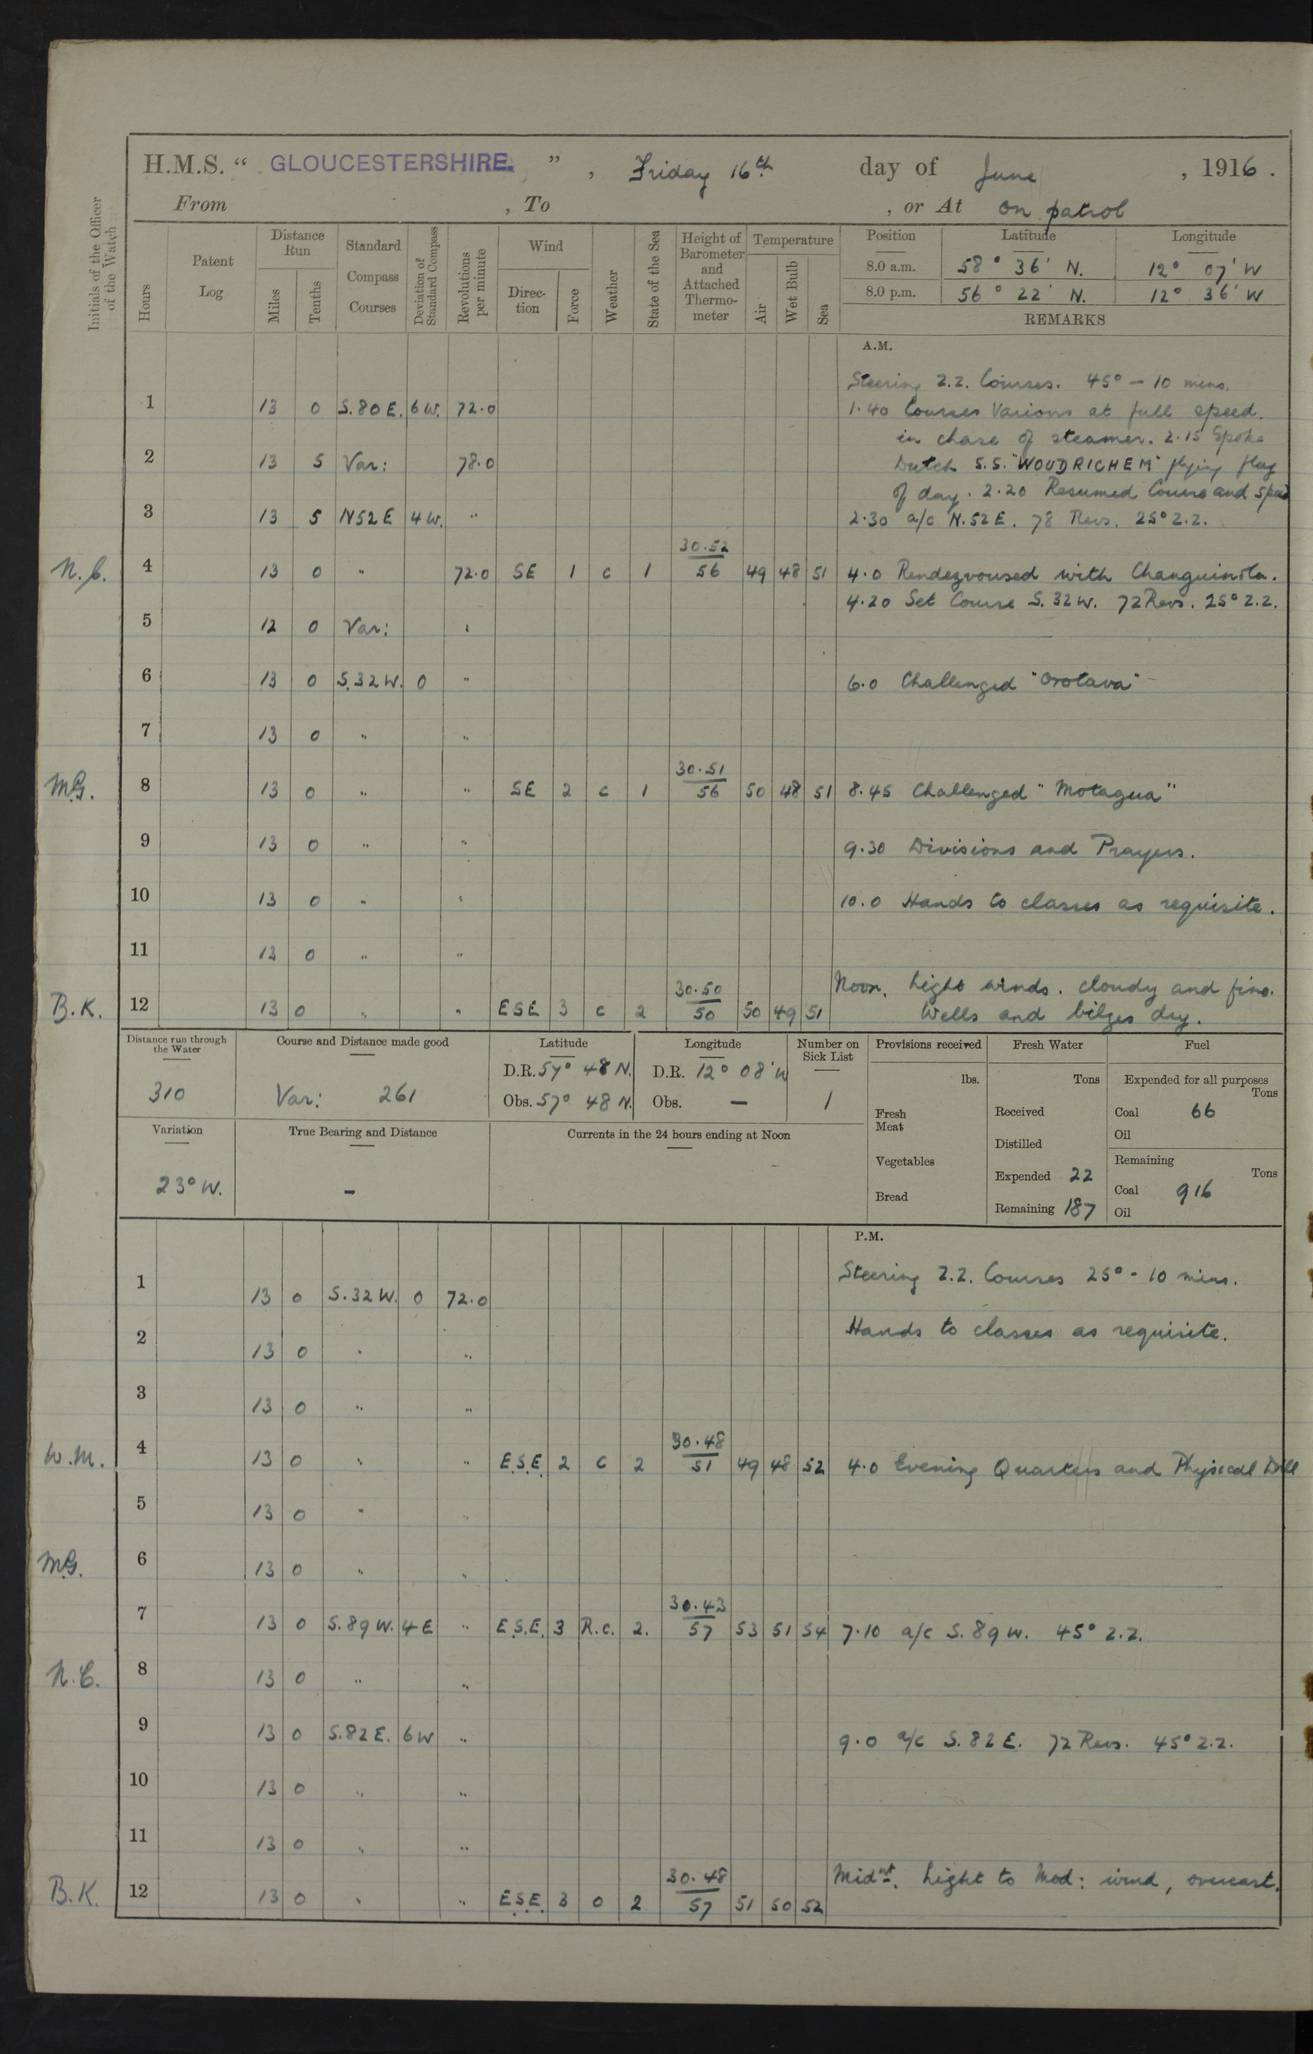 H.M.S. " GLOUCESTERSHIRE. " , Friday 16th day of June , 1916 .
From , To , or At On patrol
Initials of the Officer of the Watch
Hours
Patent Log
Distance Run
Miles
Tenths
Standard Compass Courses
Deviation of Standard Compass
Revolutions per minute
Wind
Direction
Force
Weather
State of the Sea
Height of Barometer and Attached Thermometer
Temperature
Air
Wet Bulb
Sea
Position Latitude Longitude
8.0 a.m. 58° 36' N. 12° 07' W
8.0 p.m. 56° 22' N. 12° 36' W
REMARKS
A.M.
Steering Z.Z. Courses. 45° - 10 mins.
1 13 0 S.80 E. 6 W. 72.0 1.40 Courses Various at full speed.
in chase of steamer. 2.15 Spoke
2 13 5 Var: 78.0 Dutch S.S. "WOUDRICHEM" flying flag
of day. 2.20 Resumed Course and speed
3 13 5 N52E 4 W. " 2.30 a/c N.52 E. 78 Revs. 25° Z.Z.
30.52
N.C. 4 13 0 " 72.0 SE 1 c 1 56 49 48 51 4.0 Rendezvoused with Changuinola.
4.20 Set Course S.32W. 72 Revs. 25° Z.Z.
5 12 0 Var: "
6 13 0 S.32W. 0 " 6.0 Challenged "Orotava"
7 13 0 " "
30.51
M.G. 8 13 0 " " SE 2 c 1 56 50 48 51 8.45 Challenged "Motagua"
9 13 0 " " 9.30 Divisions and Prayers.
10 13 0 " " 10.0 Hands to classes as requisite.
11 13 0 " "
30.50 Noon. Light winds. cloudy and fine.
B.K. 12 13 0 " " ESE 3 c 2 50 50 49 51 Wells and bilges dry.
Distance run through the Water
310
Course and Distance made good
Var: 261
Latitude
D.R. 57° 48 N.
Obs. 57° 48 N.
Longitude
D.R. 12° 08' W
Obs. —
Number on Sick List
1
Variation
23° W.
True Bearing and Distance
-
Currents in the 24 hours ending at Noon
Provisions received
lbs.
Fresh Meat
Vegetables
Bread
Fresh Water
Tons
Received
Distilled
Expended 22
Remaining 187
Fuel
Expended for all purposes
Tons
Coal 66
Oil
Remaining
Tons
Coal 916
Oil
P.M.
Steering Z.Z. Courses 25° - 10 mins.
1 13 0 S.32W. 0 72.0
2 13 0 " " Hands to classes as requisite.
3 13 0 " "
30.48
W.M. 4 13 0 " " E.S.E. 2 c 2 51 49 48 52 4.0 Evening Quarters and Physical Drill
5 13 0 " "
M.G. 6 13 0 " "
30.43
7 13 0 S.89W. 4 E " E.S.E. 3 R.c. 2. 57 53 51 54 7.10 a/c S.89 W. 45° Z.Z.
N.C. 8 13 0 " "
9 13 0 S.82 E. 6 W " 9.0 a/c S.82 E. 72 Revs. 45° Z.Z.
10 13 0 " "
11 13 0 " "
30.48 Midnt. Light to Mod: wind, overcast.
B.K. 12 13 0 " " E.S.E. 3 0 2 57 51 50 52